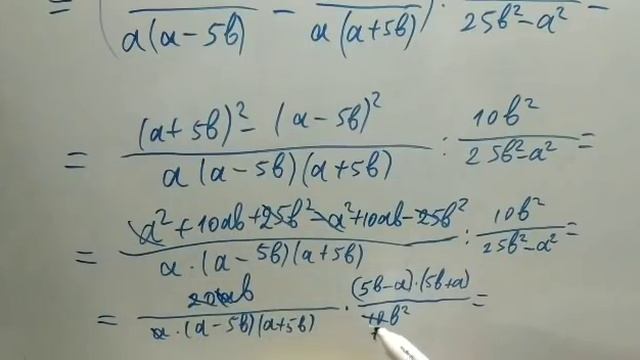 = ( / a(a-5b) - / a(a+5b) ) · / 25b²-a² =
= (a+5b)² - (a-5b)² / a(a-5b)(a+5b) : 10b² / 25b²-a² =
= a²+10ab+25b²-a²+10ab-25b² / a·(a-5b)(a+5b) : 10b² / 25b²-a² =
= 20ab / a·(a-5b)(a+5b) · (5b-a)·(5b+a) / 10b² =